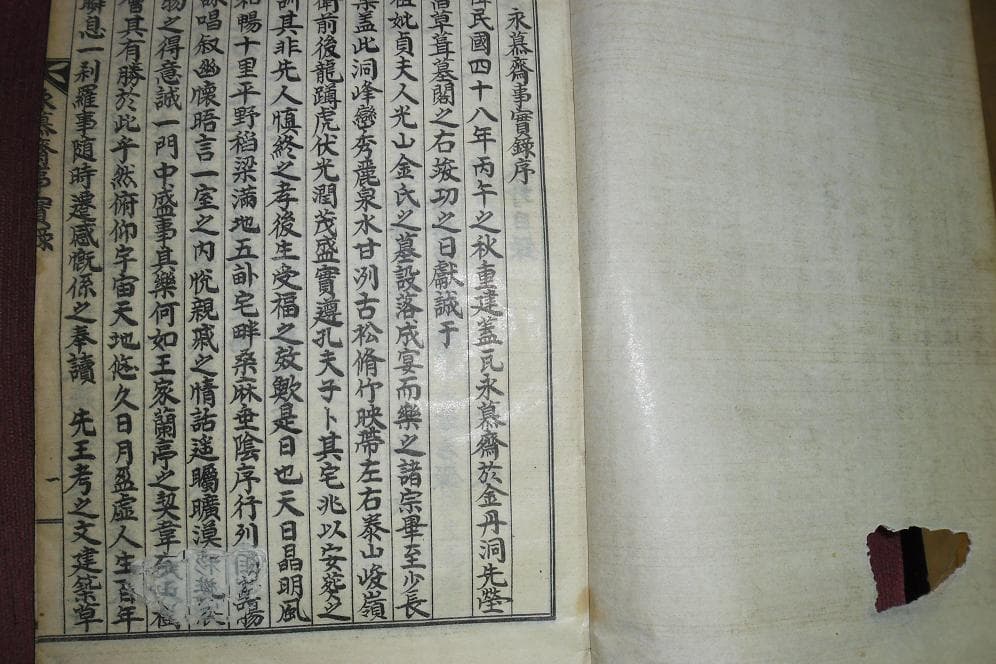 永慕齋事實錄序
民國四十八年丙午之秋重建蓋瓦永慕齋於金丹洞先塋
草葺墓閣之右竣功之日獻誠于
祖妣貞夫人光山金氏之墓設落成宴而樂之諸宗畢至少長
盖此洞峰巒秀麗泉水甘冽古松脩竹映帶左右泰山峻嶺
衛前後龍蹲虎伏光潤茂盛實遵孔夫子卜其宅兆以安葬之
訓其非先人慎終之孝後生受福之效歟是日也天日晶明風
和暢十里平野稻粱滿地五畝宅畔桑麻垂陰序行列觴
詠唱叙幽懷晤言一室之內悅親戚之情話遥矚曠漠
物之得意誠一門中盛事其樂何如王家蘭亭之契韋
其有勝於此乎然俯仰宇宙天地悠久日月盈虛人生百年
瞬息一刹羅事随時遷感慨係之奉讀 先王考之文建築草
永慕齋事實錄 一